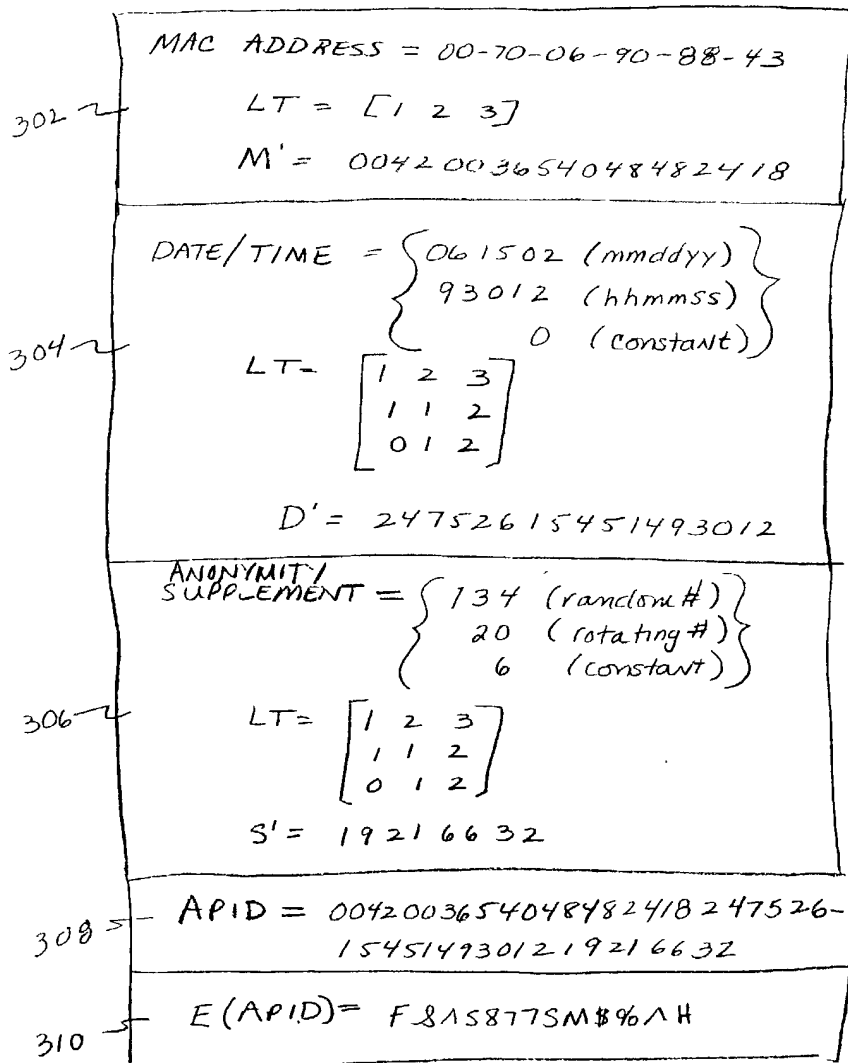 MAC ADDRESS = 00-70-06-90-88-43
302
LT = [1 2 3]
M' = 00420036540484824 18
DATE/TIME = {061502 (mmddyy)
93012 (hhmmss)
0 (constant)}
304
LT= [1 2 3
1 1 2
0 1 2]
D' = 247526154451493012
ANONYMITY/
SUPPLEMENT = {134 (random #)
20 (rotating #)
6 (constant)}
306
LT= [1 2 3
1 1 2
0 1 2]
S' = 19216632
308
APID = 00420036540484824 18247526-
1545149301219216632
310
E(APID)= F&^S877SM$%^H